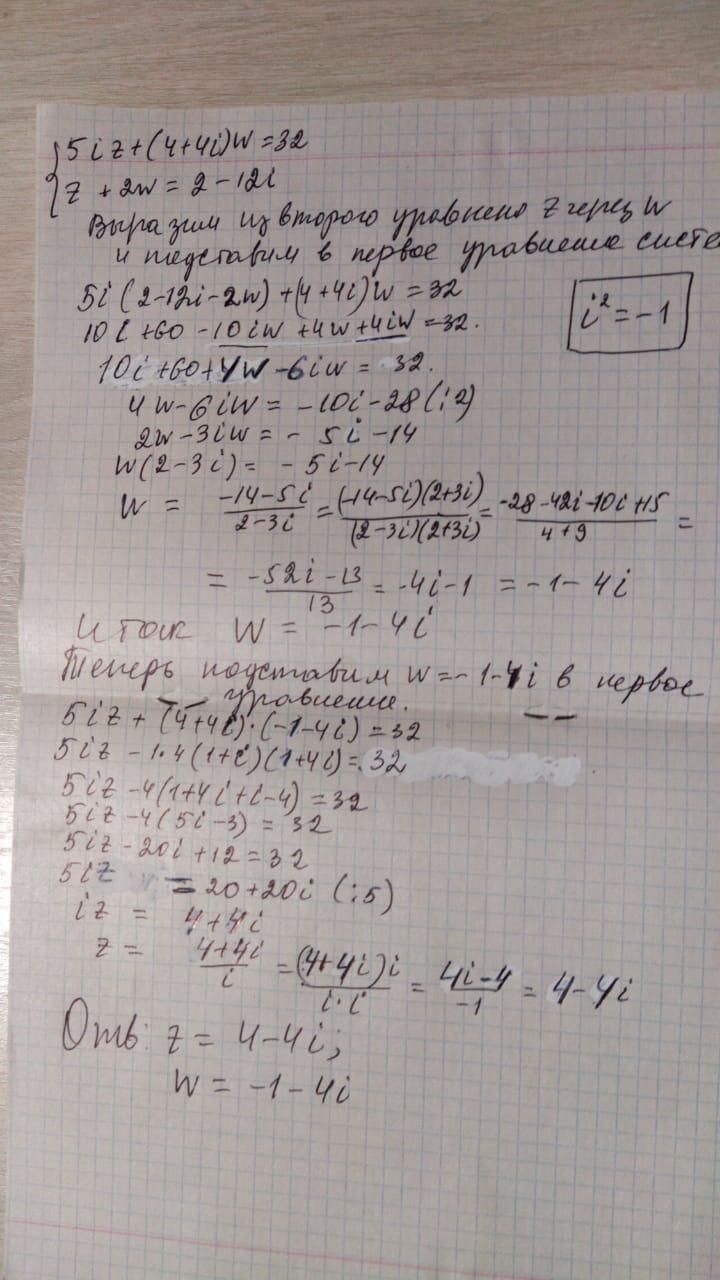 5iz+(4+4i)w=32
z+2w=2-12i
Выразим из второго уравнено z через w
и подставим в первое уравнение систе
5i(2-12i-2w)+(4+4i)w=32
i²=-1
10i+60-10iw+4w+4iw=32.
10i+60+4w-6iw=32.
4w-6iw=-10i-28(:2)
2w-3iw=-5i-14
w(2-3i)=-5i-14
w = (-14-5i)/(2-3i) = ((-14-5i)(2+3i))/((2-3i)(2+3i)) = (-28-42i-10i+15)/(4+9) =
= (-52i-13)/13 = -4i-1 = -1-4i
Итак w = -1-4i
Теперь подставим w=-1-4i в первое
уравнение.
5iz+(4+4i)·(-1-4i)=32
5iz-1·4(1+i)(1+4i)=32
5iz-4(1+4i+i-4)=32
5iz-4(5i-3)=32
5iz-20i+12=32
5iz = 20+20i (:5)
iz = 4+4i
z = (4+4i)/i = ((4+4i)i)/(i·i) = (4i-4)/(-1) = 4-4i
Отв: z=4-4i;
w=-1-4i